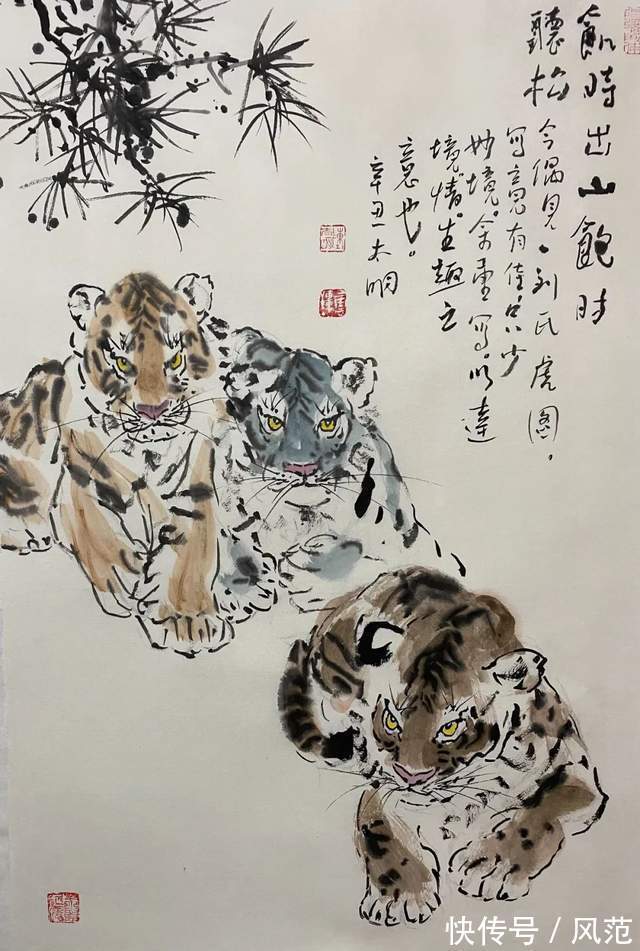 飢時出山飽时
聽松 今偶見、刘氏虎图。
写意有佳 少
妙境。余重写。以達
境情。生趣之
意也。
辛丑大明
快传号 / 风范